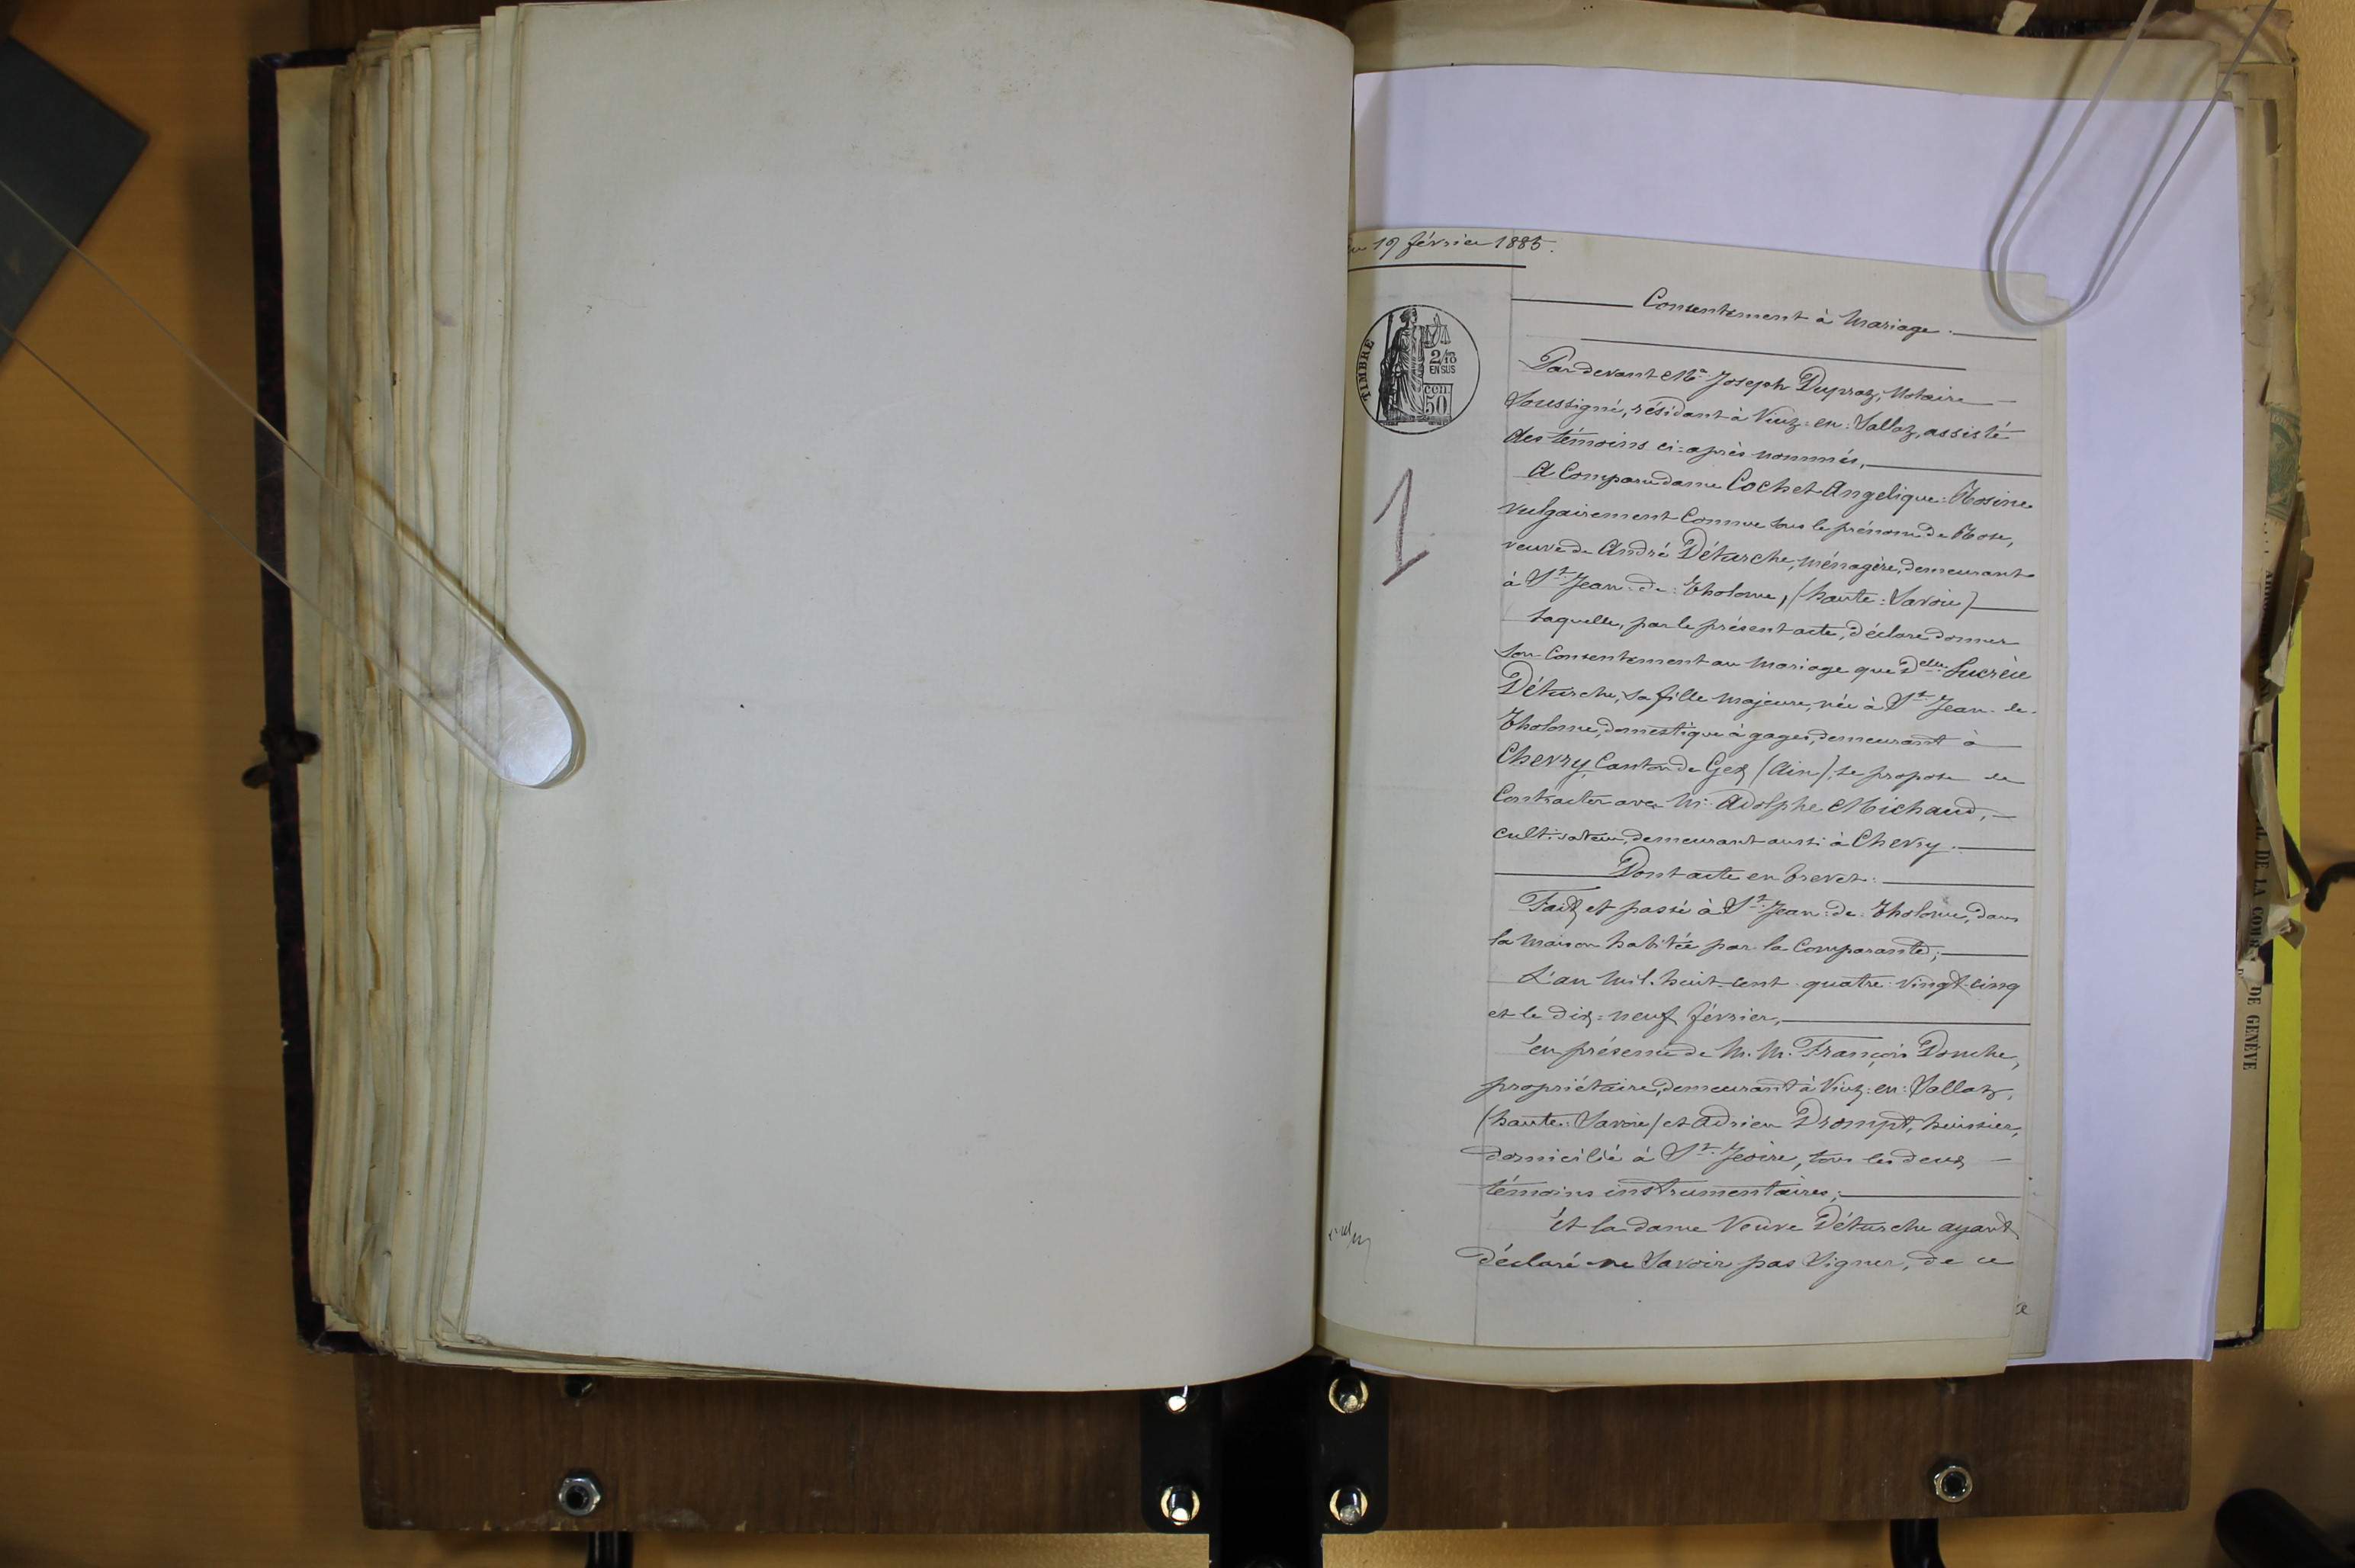 19 février 1885.
Consentement à Mariage.
TIMBRE
2/10
EN SUS
50
Pardevant Me Joseph Dupraz, Notaire
Soussigné, résidant à Viuz-en-Sallaz, assisté
des témoins ci-après nommés,
A Comparu dame Cochet Angélique-Rosine
vulgairement Connue sous le prénom de Rose,
veuve de André Déturche, ménagère, demeurant
à St. Jean-de-Tholome, (haute-Savoie)
Laquelle, par le présent acte, déclare donner
Son Consentement au Mariage que Delle Lucrèce
Déturche, sa fille majeure, née à St Jean-de-
Tholome, domestique à gages, demeurant à
Chevry, Canton de Gex (Ain), se propose de
Contracter avec Mr. Adolphe Michaud,
cultivateur, demeurant aussi à Chevry.
Dont acte en brevet.
Fait et passé à St. Jean-de-Tholome, dans
la Maison habitée par la Comparante;
L'an Mil-huit-cent-quatre-vingt-cinq
et le dix-neuf février,
en présence de M.M. François Donche,
propriétaire, demeurant à Viuz-en-Sallaz,
(haute-Savoie) et Adrien Drompt, huissier,
domicilié à St. Jeoire, tous les deux
témoins instrumentaires;
Et la dame Veuve Déturche ayant
déclaré ne Savoir pas Signer, de ce
1
DE LA COUR
DE GENÈVE